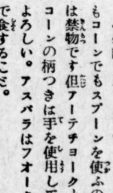 もコーンでもスプーンを使ふの
は禁物です但アーテチョーク
コーンの柄つきは手を使用し
よろしい。アスパラはフオー
で食することだ。